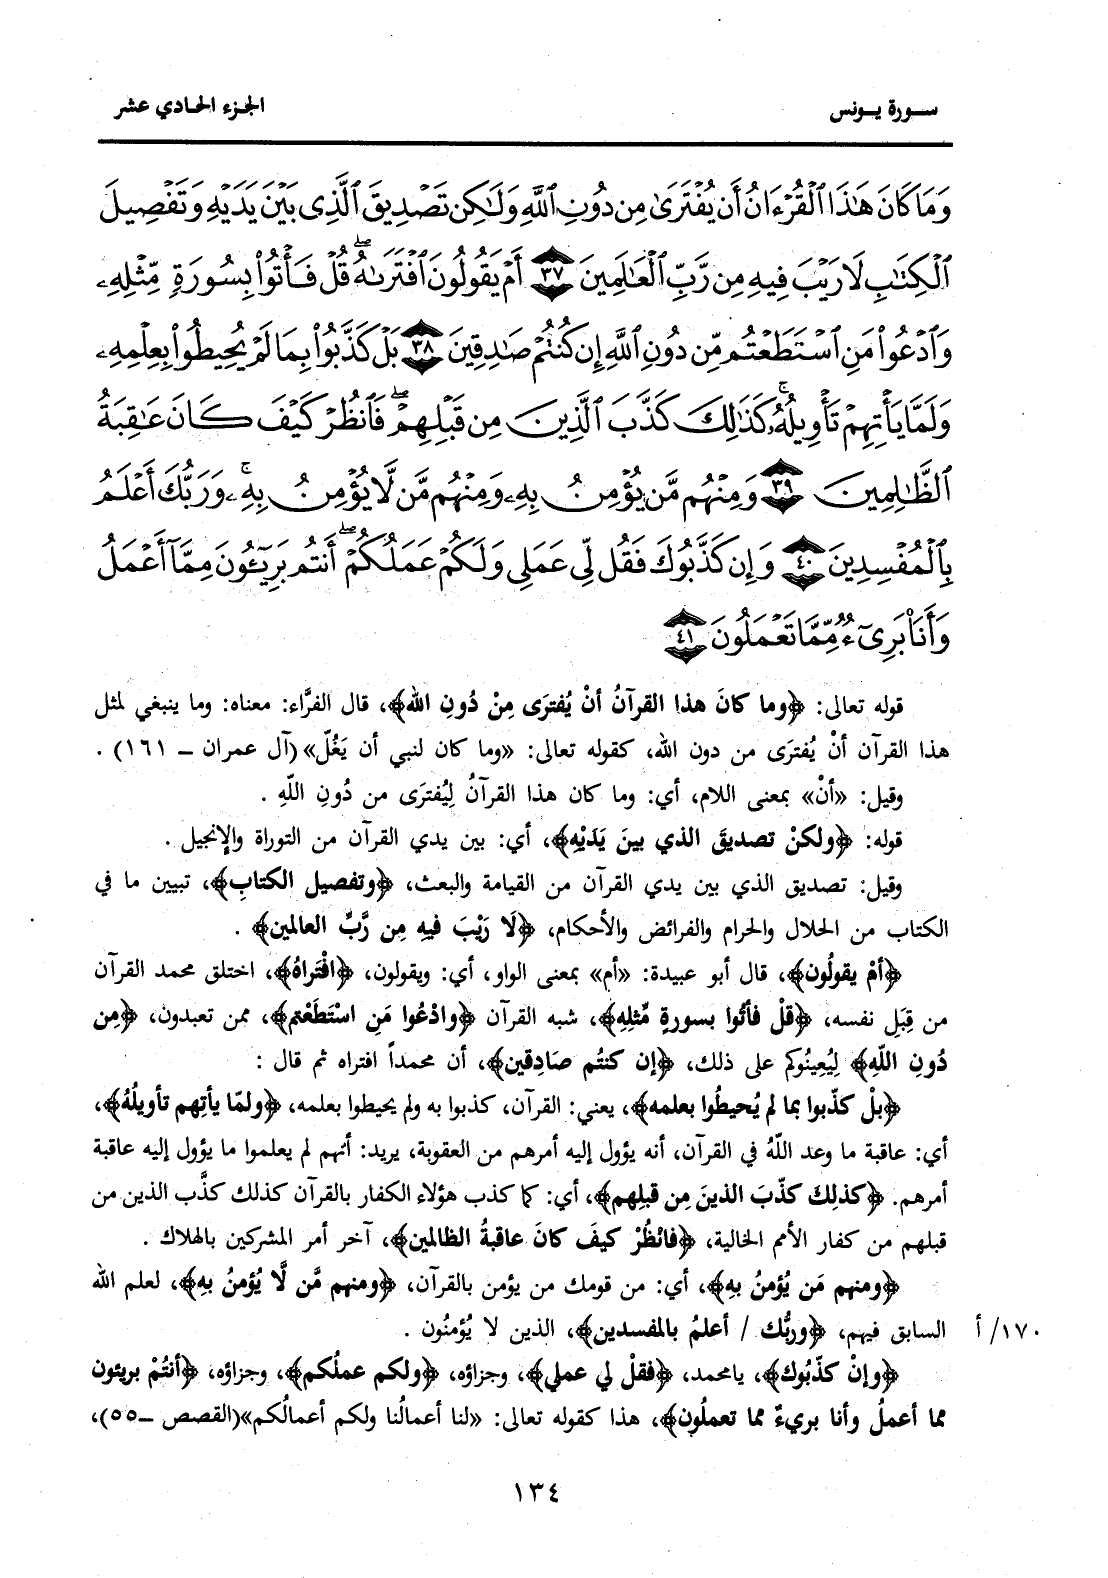 سورة يونس
الجزء الحادي عشر
وَمَا كَانَ هَٰذَا ٱلْقُرْءَانُ أَن يُفْتَرَىٰ مِن دُونِ ٱللَّهِ وَلَٰكِن تَصْدِيقَ ٱلَّذِى بَيْنَ يَدَيْهِ وَتَفْصِيلَ
ٱلْكِتَٰبِ لَا رَيْبَ فِيهِ مِن رَّبِّ ٱلْعَٰلَمِينَ ٣٧ أَمْ يَقُولُونَ ٱفْتَرَىٰهُ ۖ قُلْ فَأْتُوا۟ بِسُورَةٍ مِّثْلِهِۦ
وَٱدْعُوا۟ مَنِ ٱسْتَطَعْتُم مِّن دُونِ ٱللَّهِ إِن كُنتُمْ صَٰدِقِينَ ٣٨ بَلْ كَذَّبُوا۟ بِمَا لَمْ يُحِيطُوا۟ بِعِلْمِهِۦ
وَلَمَّا يَأْتِهِمْ تَأْوِيلُهُۥ ۚ كَذَٰلِكَ كَذَّبَ ٱلَّذِينَ مِن قَبْلِهِمْ ۖ فَٱنظُرْ كَيْفَ كَانَ عَٰقِبَةُ
ٱلظَّٰلِمِينَ ٣٩ وَمِنْهُم مَّن يُؤْمِنُ بِهِۦ وَمِنْهُم مَّن لَّا يُؤْمِنُ بِهِۦ ۚ وَرَبُّكَ أَعْلَمُ
بِٱلْمُفْسِدِينَ ٤٠ وَإِن كَذَّبُوكَ فَقُل لِّى عَمَلِى وَلَكُمْ عَمَلُكُمْ ۖ أَنتُم بَرِيٓـُٔونَ مِمَّآ أَعْمَلُ
وَأَنَا۠ بَرِىٓءٌ مِّمَّا تَعْمَلُونَ ٤١
قوله تعالى: ﴿وما كانَ هذا القرآنُ أنْ يُفترَى مِنْ دُونِ الله﴾، قال الفرَّاء: معناه: وما ينبغي لمثل
هذا القرآن أنْ يُفترَى من دون الله، كقوله تعالى: «وما كان لنبي أن يَغُلّ» (آل عمران – ١٦١) .
وقيل: «أنْ» بمعنى اللام، أي: وما كان هذا القرآنُ لِيُفترَى من دُونِ اللّهِ .
قوله: ﴿ولكنْ تصديقَ الذي بينَ يَدَيْهِ﴾، أي: بين يدي القرآن من التوراة والإنجيل .
وقيل: تصديق الذي بين يدي القرآن من القيامة والبعث، ﴿وتفصيل الكتابِ﴾، تبيين ما في
الكتاب من الحلال والحرام والفرائض والأحكام، ﴿لَا رَيْبَ فيهِ مِن رَّبِّ العالمين﴾ .
﴿أمْ يقولُون﴾، قال أبو عبيدة: «أم» بمعنى الواو، أي: ويقولون، ﴿افْتَراهُ﴾، اختلق محمد القرآن
من قِبَلِ نفسه، ﴿قُلْ فأتُوا بسورةٍ مِّثلِهِ﴾، شبه القرآن ﴿وادْعُوا مَنِ اسْتَطَعْتم﴾، ممن تعبدون، ﴿مِن
دُونِ اللّهِ﴾ لِيُعينُوكم على ذلك، ﴿إن كنتُم صَادِقين﴾، أن محمداً افتراه ثم قال :
﴿بلْ كذّبوا بما لم يُحيطُوا بعلمه﴾، يعني: القرآن، كذبوا به ولم يحيطوا بعلمه، ﴿ولمّا يأتِهم تأويلُهُ﴾،
أي: عاقبة ما وعد اللّهُ في القرآن، أنه يؤول إليه أمرهم من العقوبة، يريد: أنهم لم يعلموا ما يؤول إليه عاقبة
أمرهم. ﴿كذلِكَ كذّبَ الذينَ مِن قبلِهم﴾، أي: كما كذب هؤلاء الكفار بالقرآن كذلك كذَّب الذين من
قبلهم من كفار الأمم الخالية، ﴿فانْظُرْ كيفَ كانَ عاقبةُ الظالمين﴾، آخر أمر المشركين بالهلاك .
﴿ومنهم مَن يُؤمنُ بهِ﴾، أي: من قومك من يؤمن بالقرآن، ﴿ومنهم مَّن لَّا يُؤمنُ بهِ﴾، لعلم الله
السابق فيهم، ﴿وربُّك / أعلمُ بالمفسدين﴾، الذين لا يُؤمنُون . ١٧٠/ أ
﴿وإنْ كذّبُوك﴾، يامحمد، ﴿فقلْ لي عملي﴾، وجزاؤه، ﴿ولكم عملُكم﴾، وجزاؤه، ﴿أنتُمْ بريئون
مما أعملُ وأنا بريءٌ مما تعملُون﴾، هذا كقوله تعالى: «لنا أعمالُنا ولكم أعمالُكم»(القصص –٥٥)،
١٣٤